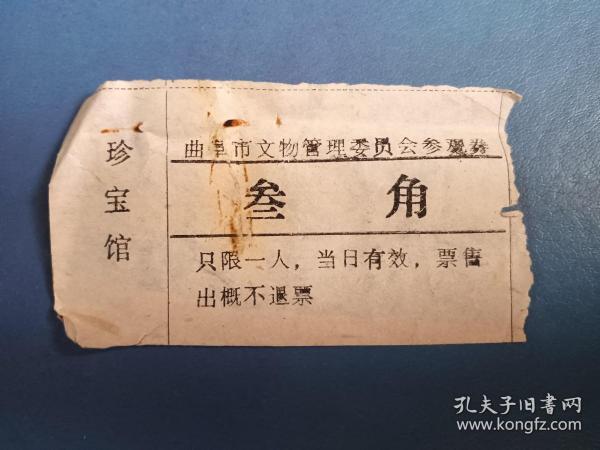 珍宝馆
曲阜市文物管理委员会参观券
叁 角
只限一人，当日有效，票售
出概不退票
孔夫子旧书网
www.kongfz.com